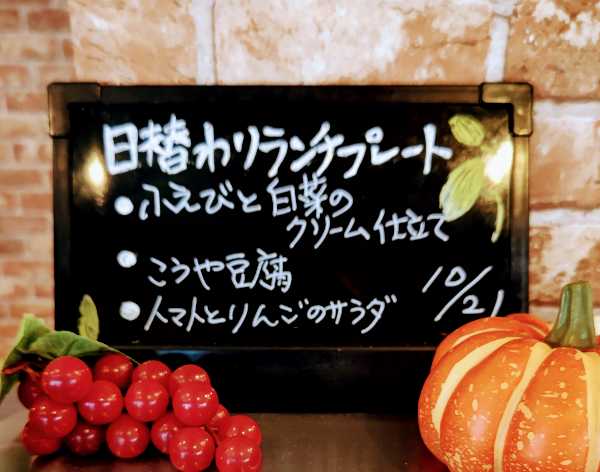 日替わりランチプレート
• ふえびと白菜の
クリーム仕立て
• こうや豆腐
• トマトとりんごのサラダ
10/21